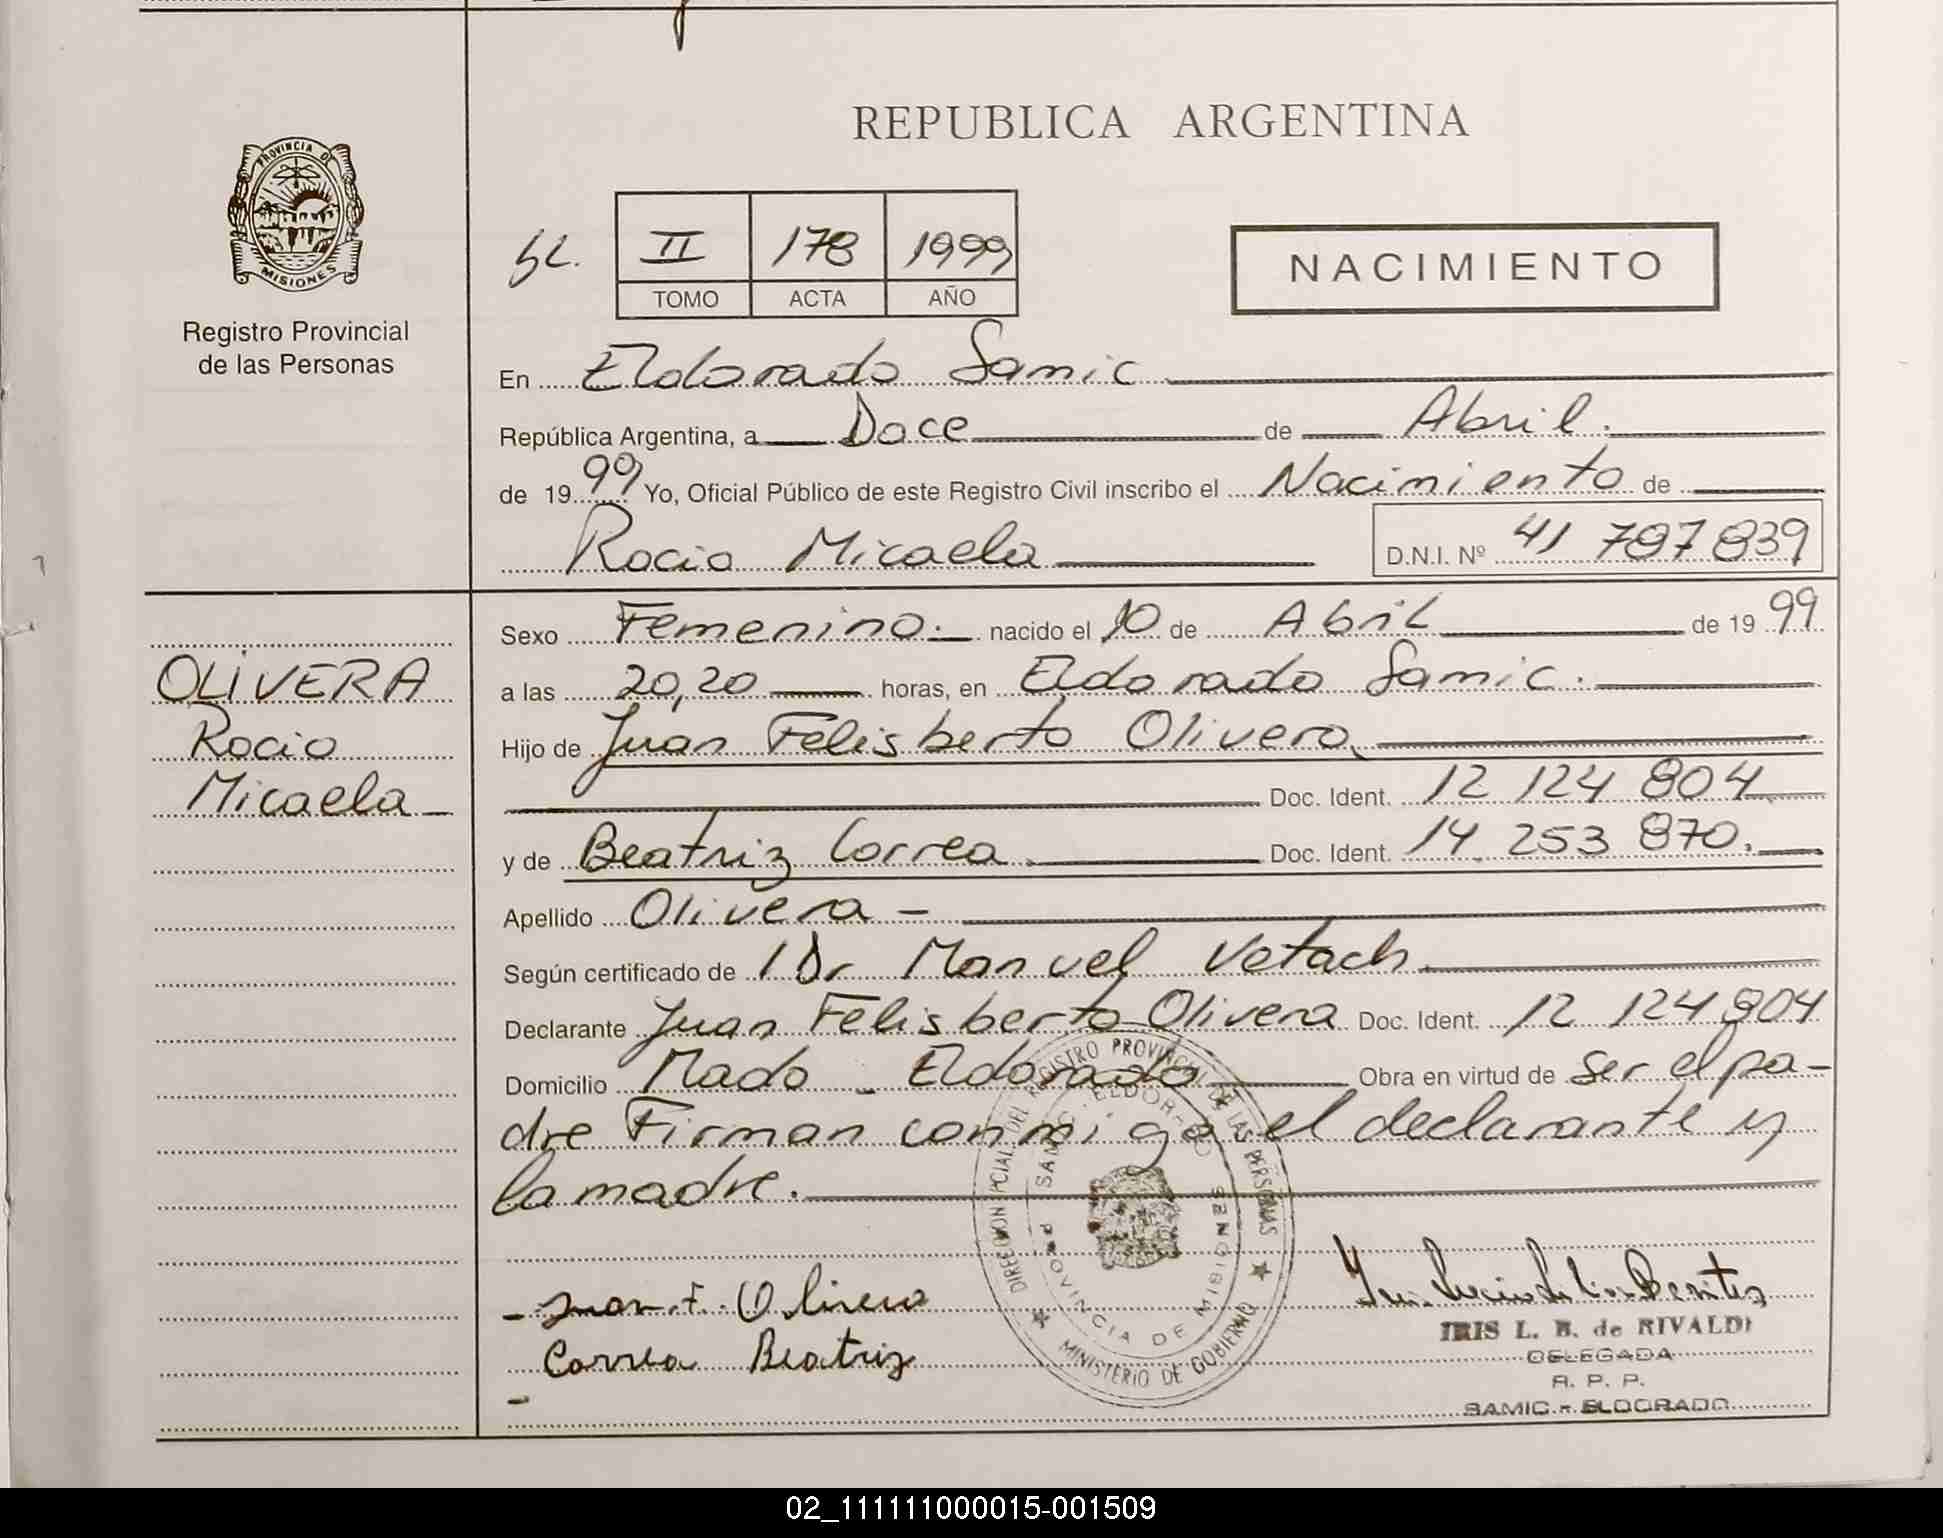 REPUBLICA ARGENTINA
PROVINCIA DE
MISIONES
Registro Provincial
de las Personas
II 178 1999
TOMO ACTA AÑO
NACIMIENTO
En Eldorado Samic
República Argentina, a Doce de Abril.
de 1999 Yo, Oficial Público de este Registro Civil inscribo el Nacimiento de
Rocio Micaela D.N.I. Nº 41 787 839
OLIVERA
Rocio
Micaela
Sexo Femenino. nacido el 10 de Abril de 1999
a las 20,20 horas, en Eldorado Samic.
Hijo de Juan Felisberto Olivera
Doc. Ident. 12 124 804
y de Beatriz Correa Doc. Ident. 14 253 870.
Apellido Olivera -
Según certificado de Dr Manuel Vetach
Declarante Juan Felisberto Olivera Doc. Ident. 12 124 804
Domicilio Mado - Eldorado Obra en virtud de ser el pa-
dre Firman conmigo el declarante y
la madre.
DIRECCION PCIAL. DEL REGISTRO PROVINCIAL DE LAS PERSONAS
SAMIC - ELDORADO
PROVINCIA DE MISIONES
MINISTERIO DE GOBIERNO
- Juan F. Olivera
Correa Beatriz
-
Benitez
IRIS L. B. de RIVALDI
DELEGADA
R. P. P.
SAMIC - ELDORADO
02_111111000015-001509